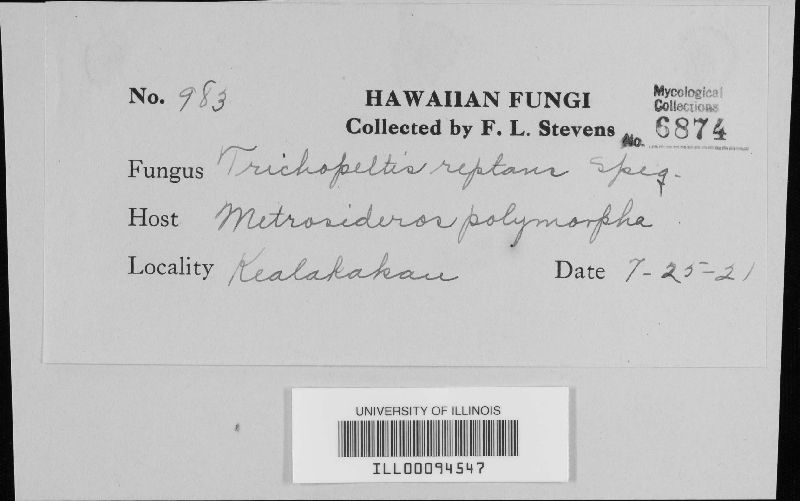 No. 983
HAWAIIAN FUNGI
Collected by F. L. Stevens
Mycological
Collections
No. 6874
Fungus Trichopeltis reptans Speg.
Host Metrosideros polymorpha
Locality Kealakakau
Date 7-25-21
UNIVERSITY OF ILLINOIS
ILL00094547